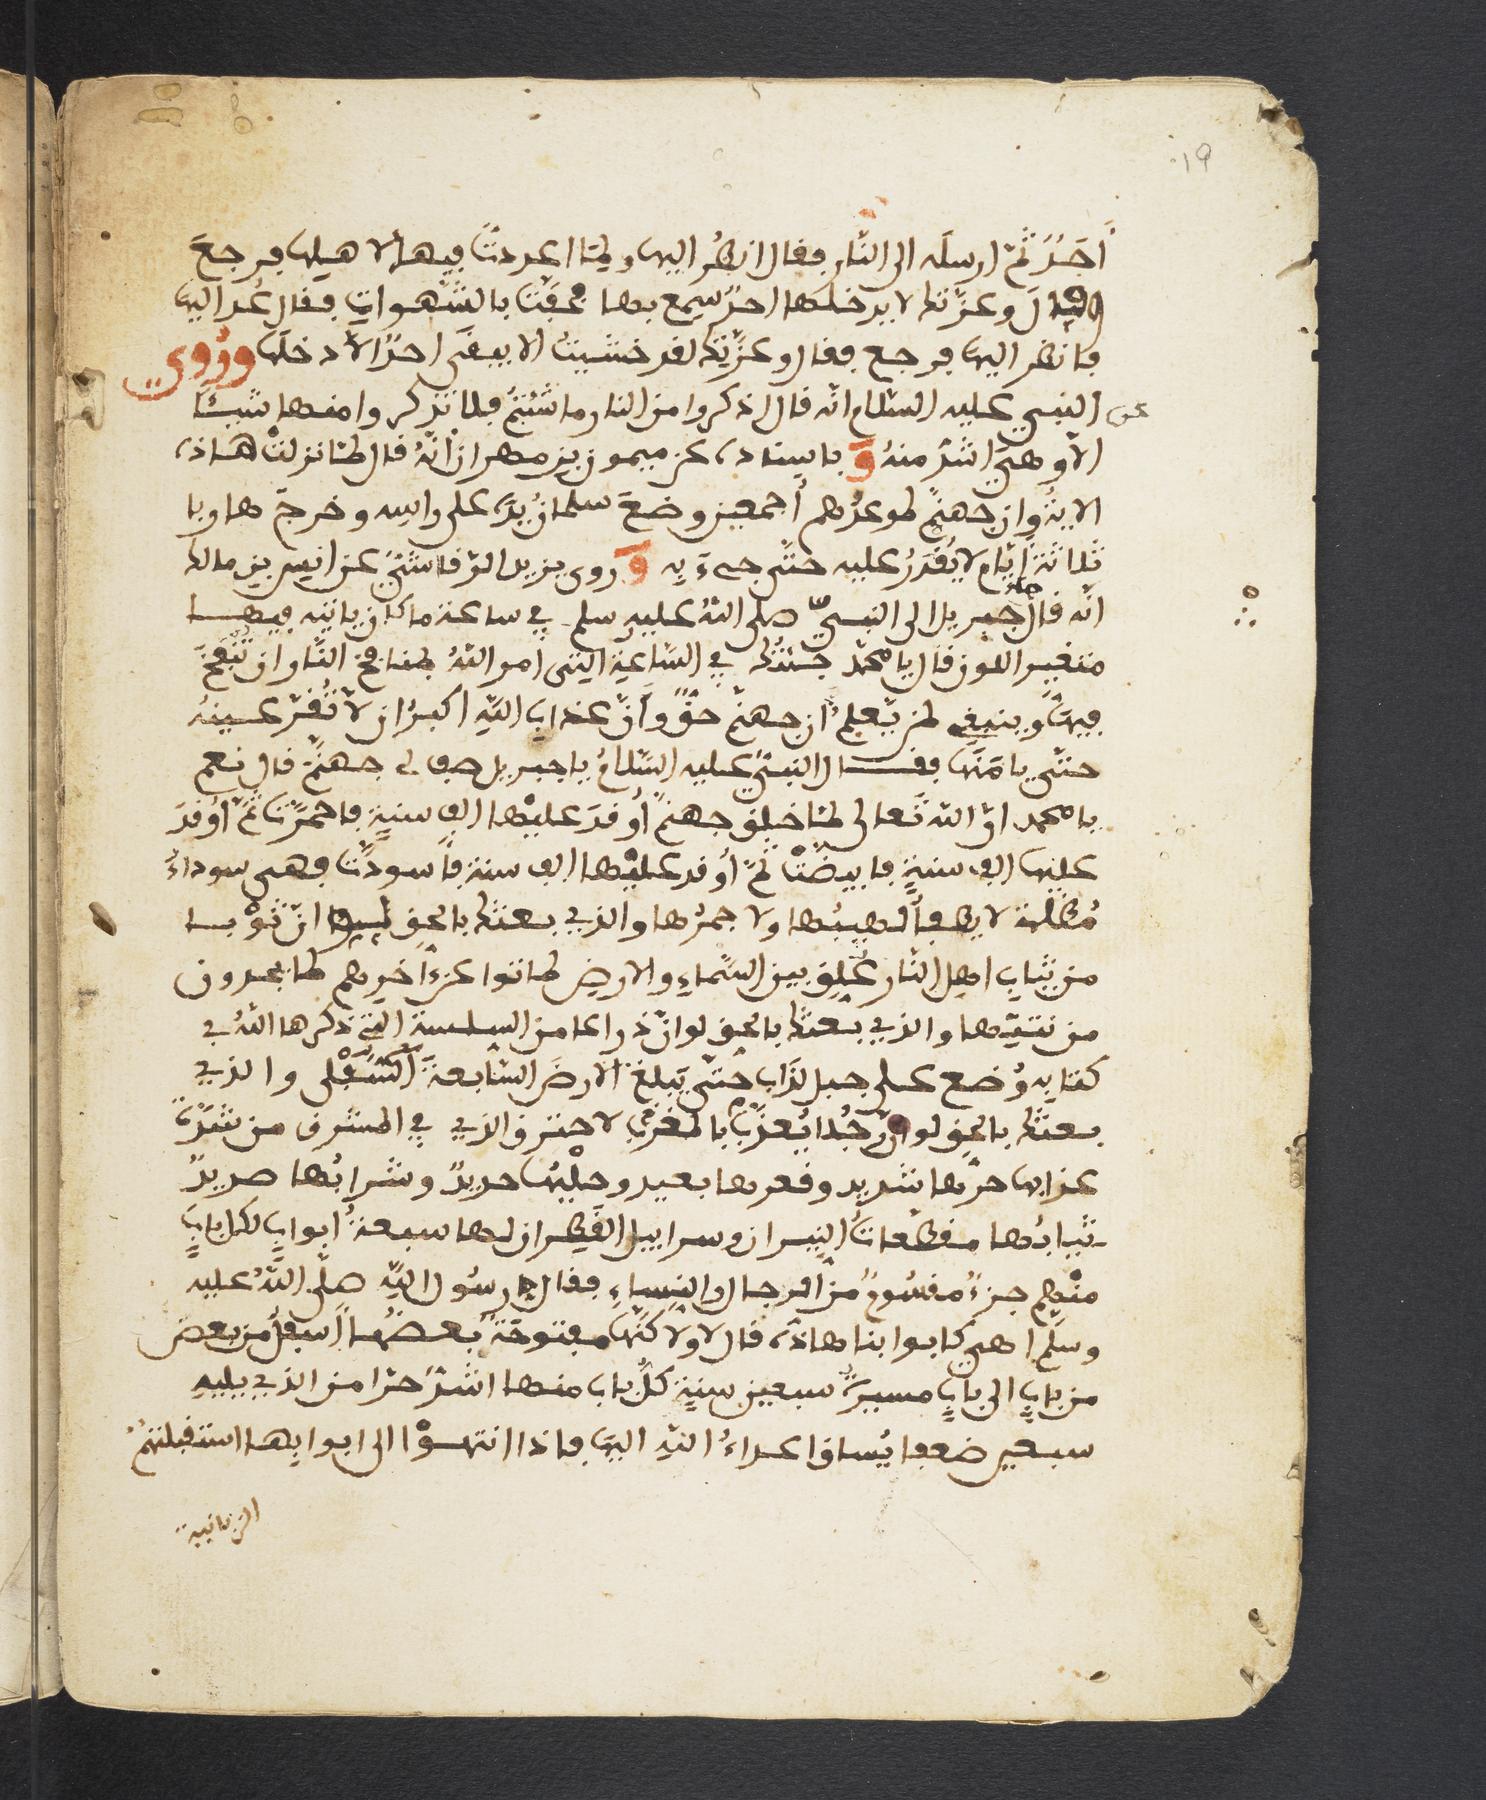 ١٩
أحَدٌ ثمّ ارسلَه الى النّار فقال انظُر اليها ولِمَا اعددتُ فيها لاهلِها فرجعَ
اليه فقالَ وعزّتك لا يدخلها احدٌ سمع بها فحُفَّت بالشّهوات فقال عُد اليها
فانظر اليها فرجع فقال وعزّتِك لقد خشيتُ الا يبقَى احدٌ الّا دخلَها ورُوِي
عن النبي عليه السّلام انّه قال اذكروا من النار ما شئتمُ فلا تذكروا منها شيئًا
الّا وهيَ اشدّ منهُ وَ باسناده عن ميمون بن مهران أنّهُ قال لمّا نزلتْ هاذه
الايةُ وان جهنّم لموعدُهم أجمعين وضعَ سلمانُ يدَه على راسِه وخرجَ هاربا
ثلاثةَ ايّام لا يُقدَرُ عليه حتّى جيءَ به وَ روى يزيد الرّقاشيّ عن انس بن مالك
انّه قال جاء جبريل الى النبيّ صلى اللهُ عليه سلم في ساعة ما كان ياتيه فيها
متغير اللون قال يا محمّد جئتُك في السّاعةِ الّتي أمر اللهُ بمنافخِ النّار ان تُنفخَ
فيها وينبغي لمن يَعلمُ أن جهنّم حقٌّ وأنّ عذاب اللهِ اكبرُ ان لا تُقرّ عينهُ
حتّى يا مَنَها فقال النبيّ عليه السّلامُ يا جبريل صف لي جهنّمَ قال نعم
يا محمد انّ اللهَ تَعالى لمّا خلقَ جهنّم أُوقدَ عليْها الف سنةٍ فاحمرّت ثمّ أُوقدَ
عليها الف سنةٍ فابيضّتْ ثمّ أُوقد عليْها الف سنة فاسودّت فهي سوداءُ
مُظلمة لا يطفأ لهيبُها ولا جمرُها والذي بعثك بالحق لو انّ ثوْبا
من ثيابِ اهل النّار عُلّقَ بين السّماءِ والارضِ لماتوا عن ءاخرِهم لما يجدون
من نتنِها والذي بعثَك بالحق لو انّ ذراعا من السلسلة التي ذكرها اللهُ في
كتابِه وُضع على جبل لذَابَ حتّى يَبلغَ الارضَ السّابعةَ السُّفْلى والذي
بعثك بالحق لو انّ رجُلا يُعذّب بالمغربِ لاحترق الذي في المشرق من شدّة
عذابها حرّها شديد وقعرها بعيد وحِلْيتُها حديدٌ وشرابُها صديدٌ
ثيابُها مقطعاتُ النيران وسرابيل القَطِران لها سبعةُ أبوابٍ لكل بابٍ
منْهم جزءٌ مقسُومٌ من الرجال والنساءِ فقال رسُول اللهِ صلّى اللّهُ عليه
وسلّم اهي كابوابنا هاذه قال لا ولاكنّها مفتوحَةٌ بعضُها أسفلُ من بعض
من بابٍ الى بابٍ مسيرَةُ سبعين سنةٍ كلُّ باب منها اشدُّ حرّا من الذي يليه
سبعين ضعفا يُساق اعداءُ اللهِ اليها فاذا انتهَوْا الى ابوابِها استقبلتهُم
الزبانية